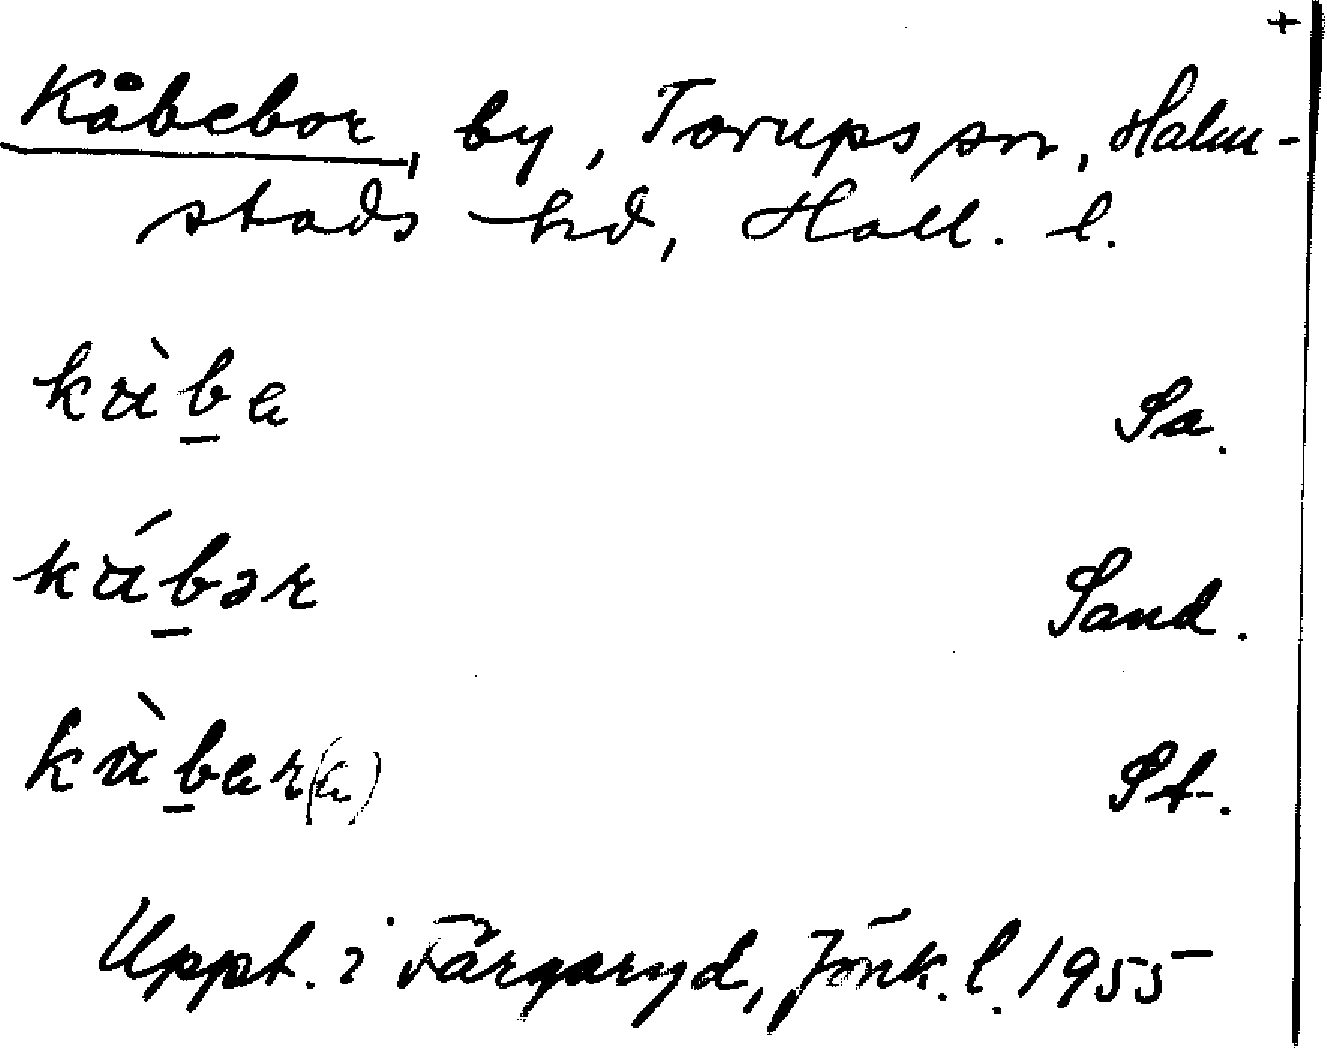 +
Kåbebor, by, Torups sn, Halm-
stads hd, Hall. l.
kàba Sa.
kábər Sand.
kàbar(a) St.
Uppt. i Färgaryd, Jönk. l. 1955